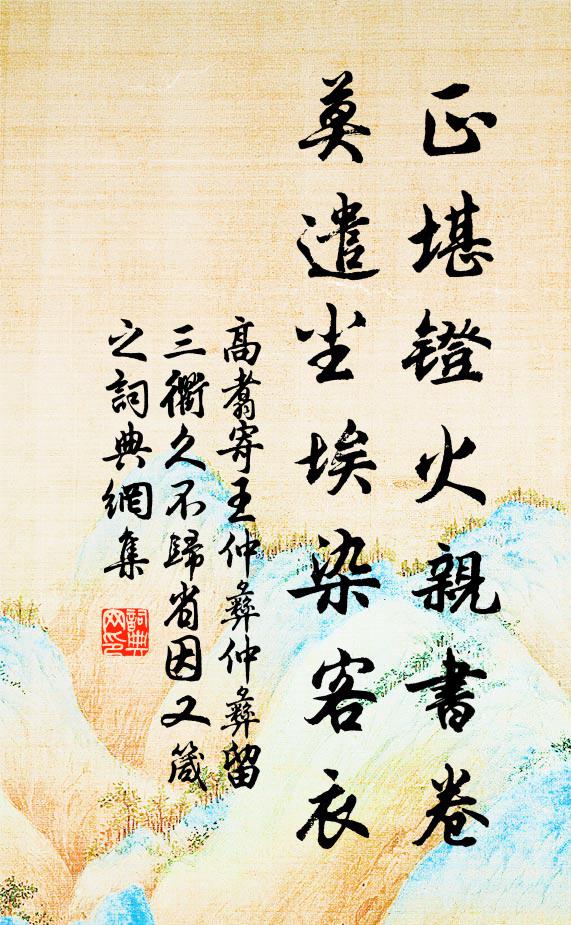 正堪鐙火親書卷
莫遣尘埃染客衣
高翥寄王仲彝仲彝留
三衢久不歸省因又箴
之詞典網集
詞典
网印